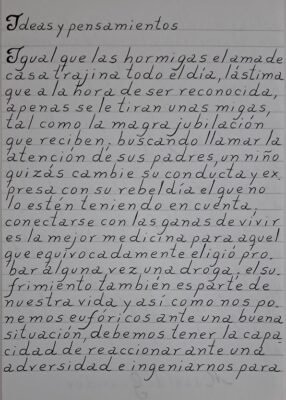 Ideas y pensamientos
Igual que las hormigas el ama de
casa trajina todo el día, lástima
que a la hora de ser reconocida,
apenas se le tiran unas migas,
tal como la magra jubilación
que reciben, buscando llamar la
atención de sus padres, un niño
quizás cambie su conducta y ex
presa con su rebeldía el que no
lo estén teniendo en cuenta,
conectarse con las ganas de vivir
es la mejor medicina para aquel
que equivocadamente eligió pro_
bar alguna vez una droga, el su_
frimiento también es parte de
nuestra vida y así como nos po_
nemos eufóricos ante una buena
situación, debemos tener la capa_
cidad de reaccionar ante una
adversidad e ingeniarnos para